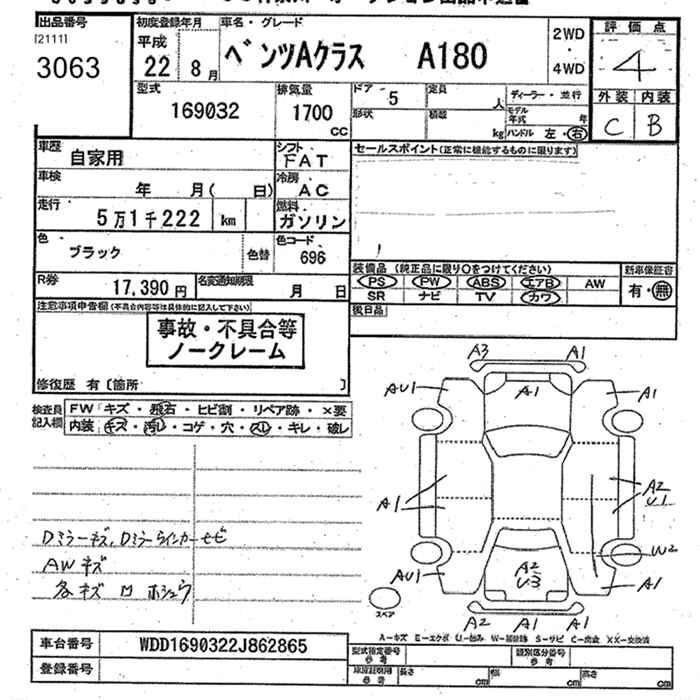 出品番号 初度登録年月 車名・グレード 評価点
[2111]
3063
平成
22 8月
ベンツAクラス A180
2WD
・
4WD
4
外装 内装
C B
型式 排気量 ドア 定員 ディーラー・並行
169032 1700 cc 5 人
形状 積載 kg モデル年式 年
ハンドル 左・右
車歴 自家用 シフト FAT
セールスポイント(正常に機能するものに限ります)
車検 年 月( 日) 冷房 AC
走行 5万1千222 km 燃料 ガソリン
色 ブラック 色替 色コード 696
装備品 (純正品に限り○をつけてください) 新車保証書
PS PW ABS エアB AW 有・無
SR ナビ TV カワ
R券 17,390円 名変通知期限 月 日
後日品
注意事項申告欄(不具合内容等は具体的に記入して下さい)
事故・不具合等
ノークレーム
修復歴 有〔箇所 〕
検査員記入欄
FW キズ・飛石・ヒビ割・リペア跡・×要
内装・キズ・汚レ・コゲ・穴・スレ・キレ・破レ
A3 A1
AU1 A1 A1
A1 A2
U1
W2
AU1 A2
U3 A1
A2 A1 A1
スペア
Dミラーキズ、Dミラーウインカーヒビ
AWキズ
各キズ凹ホシュウ
A-キズ E-エクボ U-凹み W-補修跡 S-サビ C-腐食 XX-交換済
車台番号 WDD1690322J862865
型式指定番号 参考 類別区分番号 参考
登録番号
参考 長さ cm 幅 cm 高さ cm